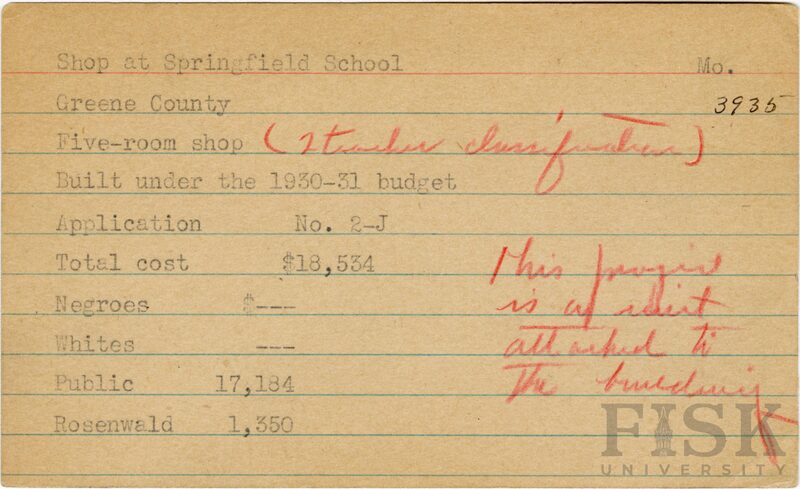 Shop at Springfield School Mo.
Greene County 3935
Five-room shop (2 teacher classification)
Built under the 1930-31 budget
Application No. 2-J
Total cost $18,534
Negroes $---
Whites ---
Public 17,184
Rosenwald 1,350
This
is a unit
attached to
the building
FISK
UNIVERSITY